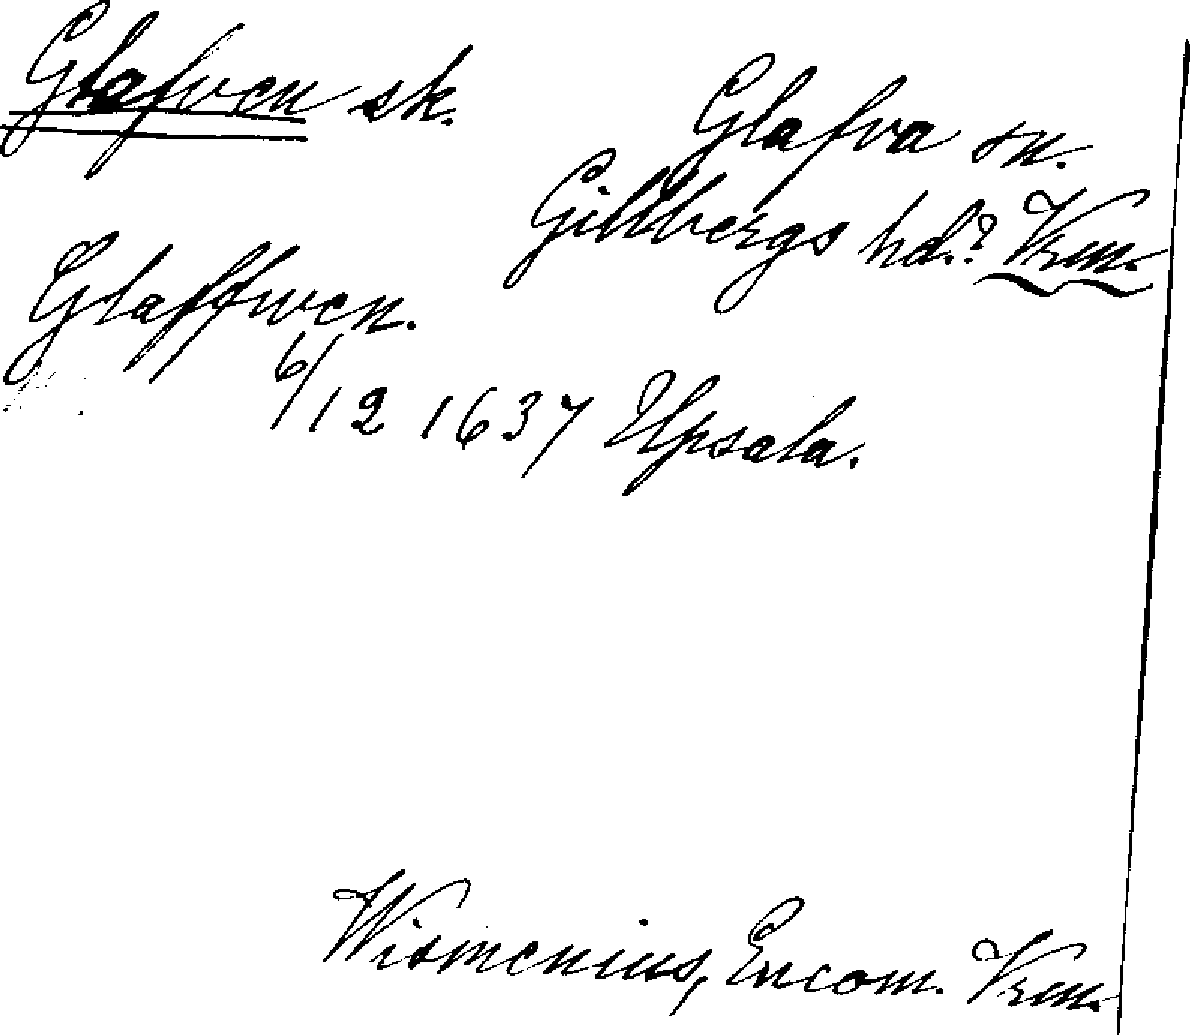 Glafwen sk.
Glafva sn.
Gillbergs hd.? Vrm.
Glaffwen.
6/12 1637 Upsala.
Wismenius, Encom. Vrm.